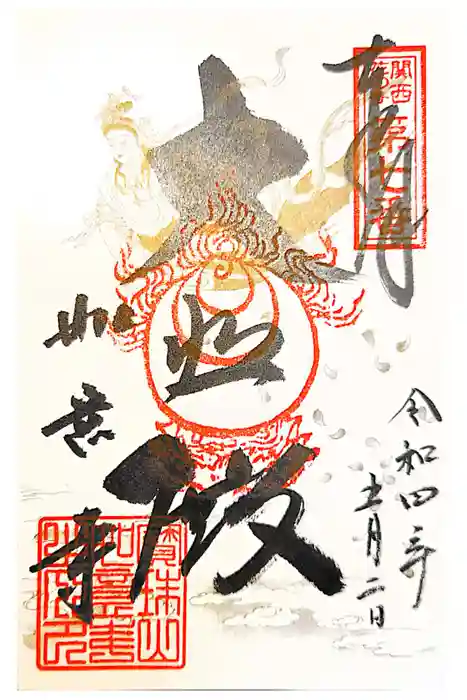 奉拝
関西
花の寺
第七番
大悲殿
如意寺
令和四年
十一月二日
寶珠山
如意寺